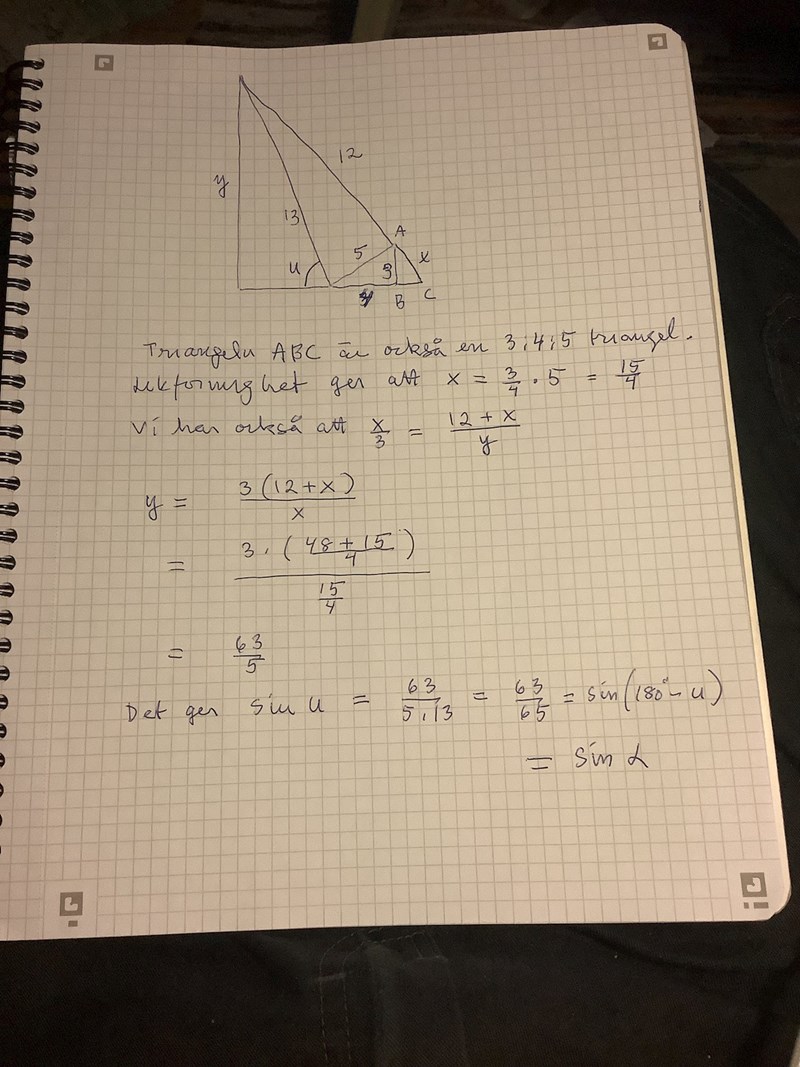 12
y
13
A
5
x
u
3
B
C
Triangeln ABC är också en 3;4;5 triangel.
Likformighet ger att x = 3/4 · 5 = 15/4
Vi har också att x/3 = (12 + x)/y
y = 3(12+x)/x
= 3 · ((48+15)/4) / (15/4)
= 63/5
Det ger sin u = 63/(5·13) = 63/65 = sin(180° - u)
= sin α